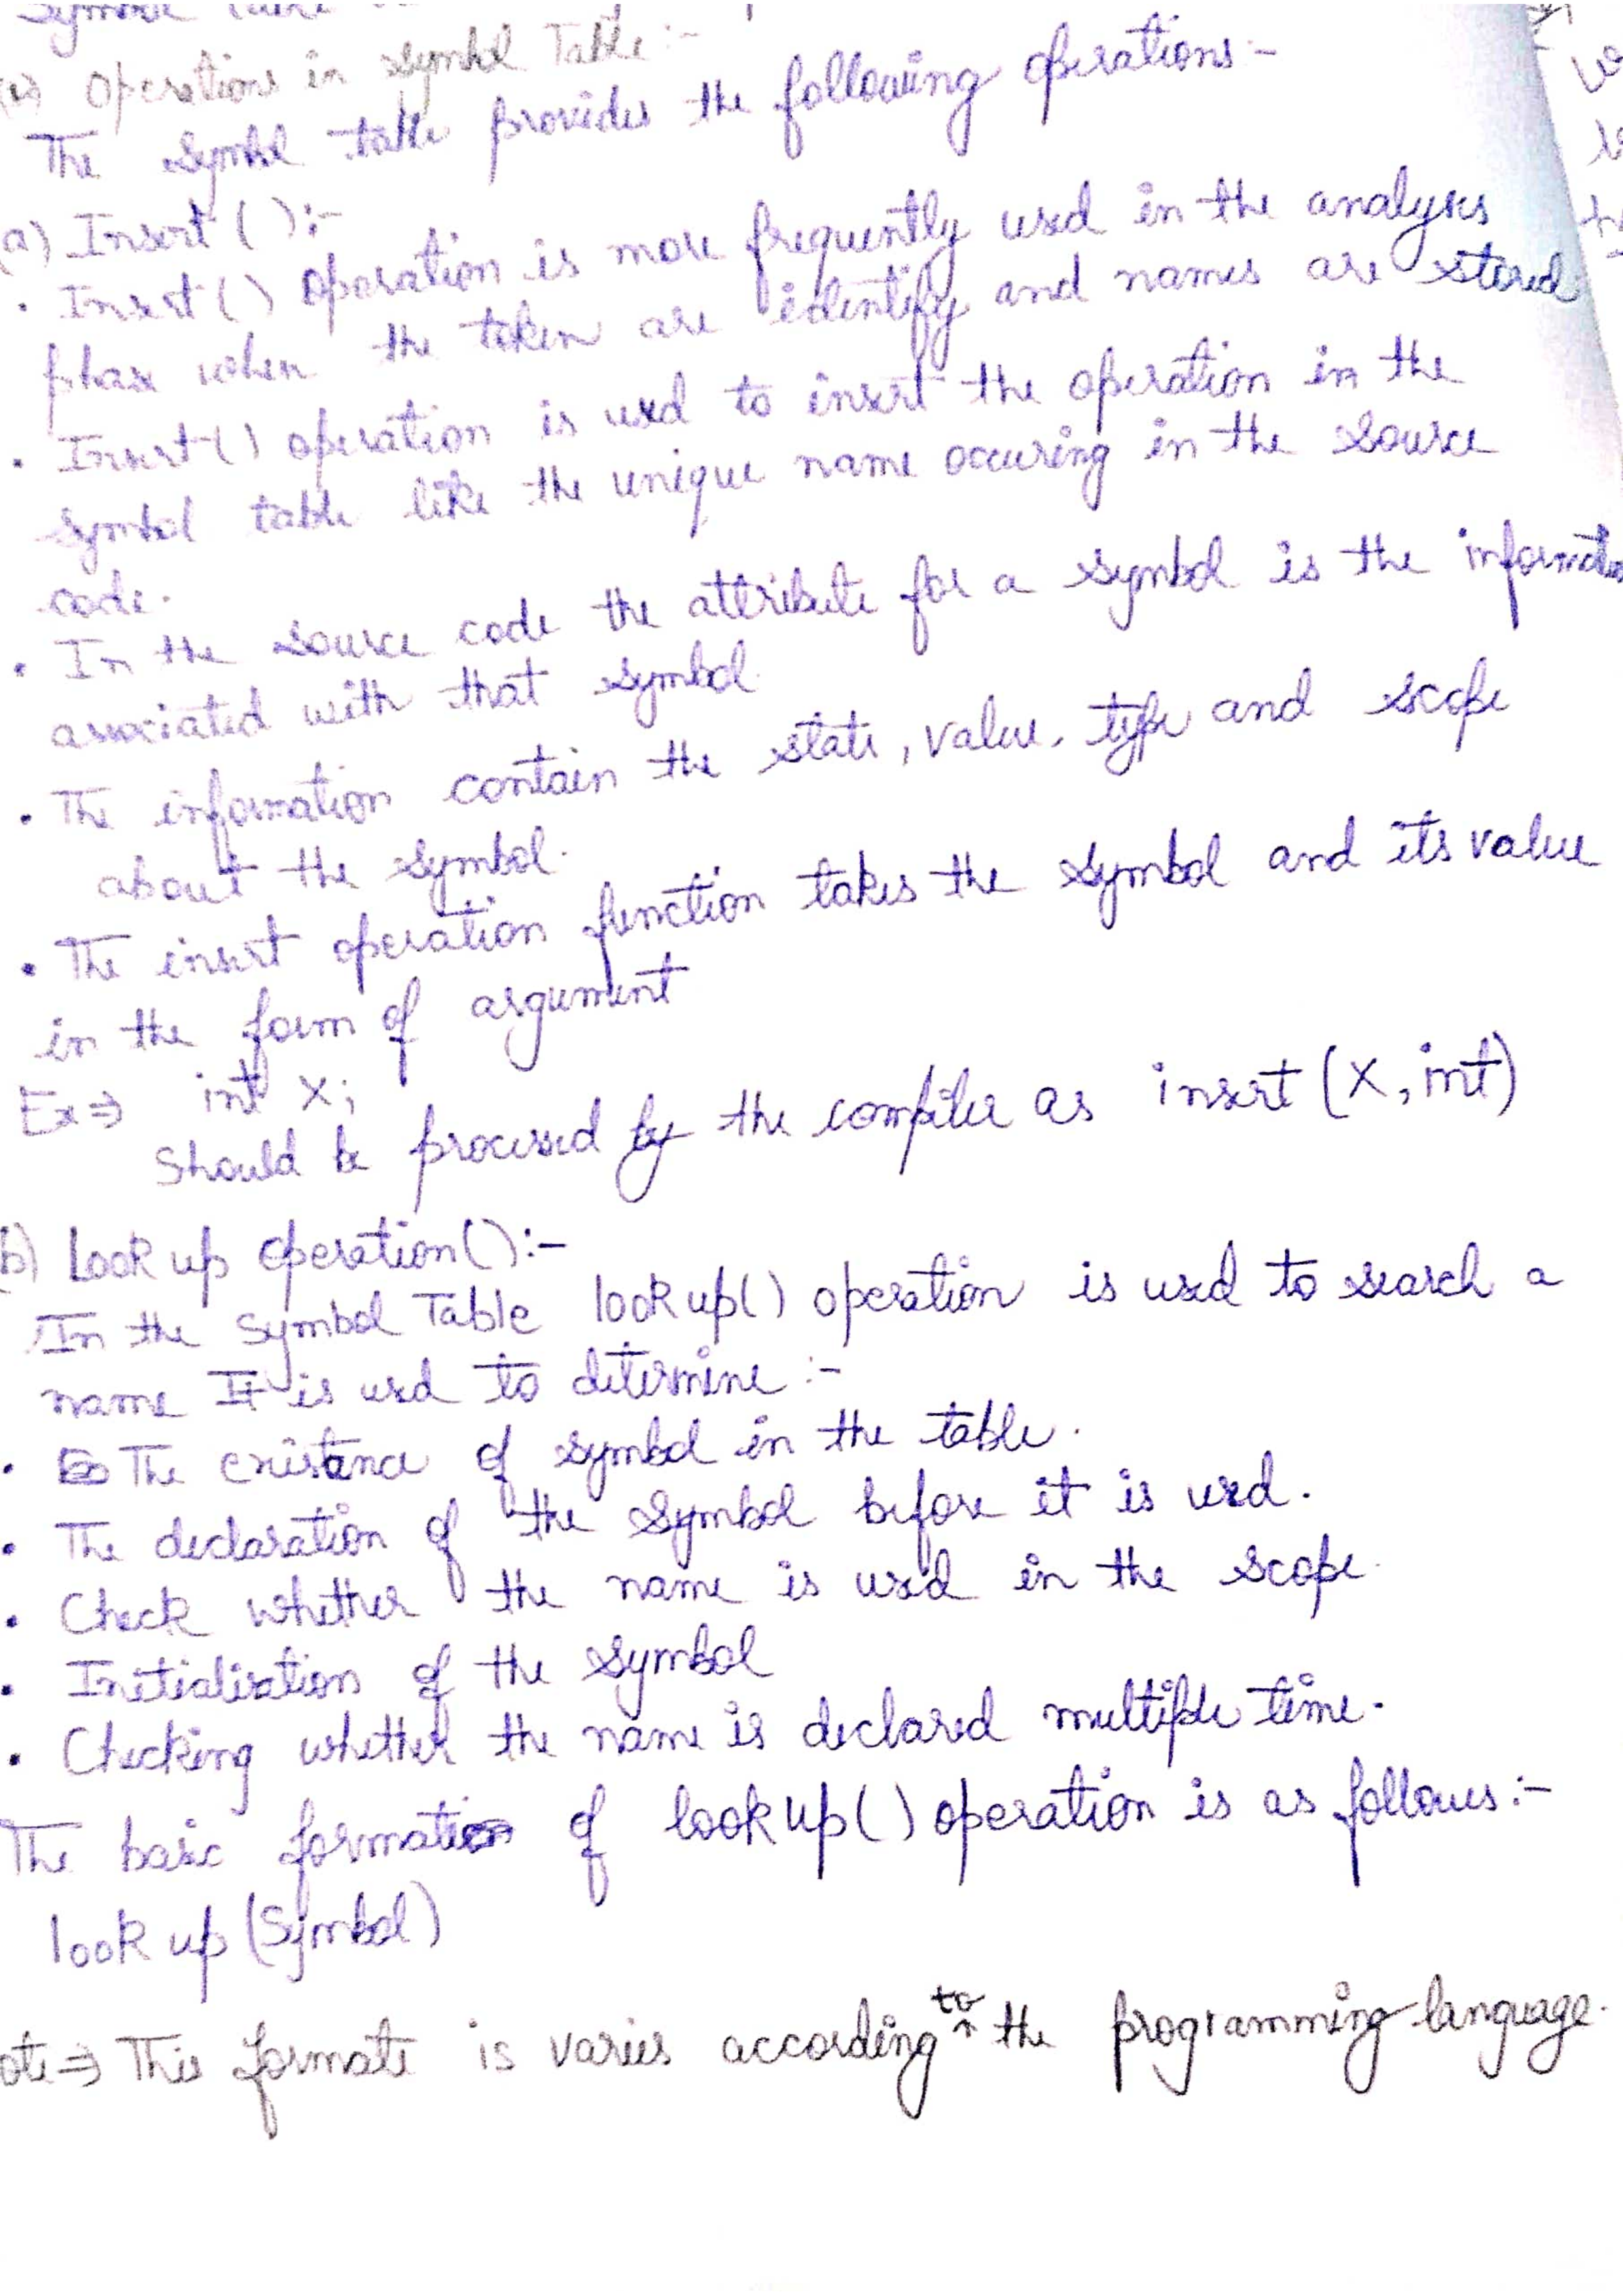 Symbol
Operations in symbol Table :-
The symbol table provides the following operations :-
(a) Insert ( ) :-
. Insert ( ) operation is more frequently used in the analysis
phase when the token are identify and names are stored.
. Insert ( ) operation is used to insert the operation in the
symbol table like the unique name occuring in the source
code.
. In the source code the attribute for a symbol is the information
associated with that symbol.
. The information contain the state, value, type and scope
about the symbol.
. The insert operation function takes the symbol and its value
in the form of argument
Ex ⇒ int x;
should be processed by the compiler as insert (x, int)
b) Look up operation ( ) :-
In the symbol Table look up( ) operation is used to search a
name It is used to determine :-
. The existance of symbol in the table.
. The declaration of the symbol before it is used.
. Check whether the name is used in the scope.
. Initialisation of the symbol
. Checking whether the name is declared multiple time.
The basic formation of look up ( ) operation is as follows :-
look up (Symbol)
ote ⇒ This formate is varies according to the programming language.